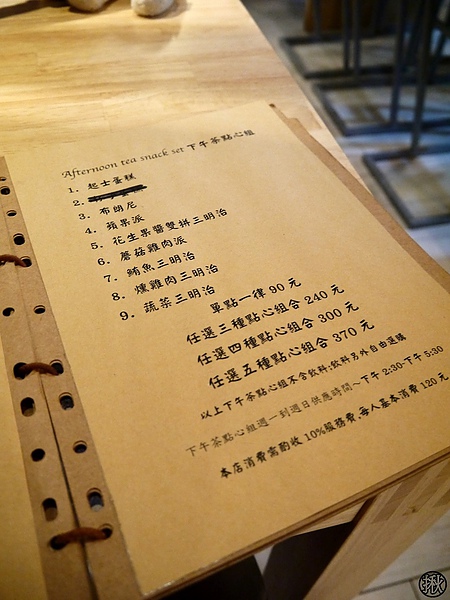 Afternoon tea snack set 下午茶點心組
1. 起士蛋糕
2.
3. 布朗尼
4. 蘋果派
5. 花生果醬雙拼三明治
6. 蘑菇雞肉派
7. 鮪魚三明治
8. 燻雞肉三明治
9. 蔬菜三明治
單點一律 90 元
任選三種點心組合 240 元
任選四種點心組合 300 元
任選五種點心組合 370 元
以上下午茶點心組不含飲料;飲料另外自由選購
下午茶點心組週一到週日供應時間～下午 2:30-下午 5:30
本店消費需酌收 10%服務費,每人基本消費 120 元